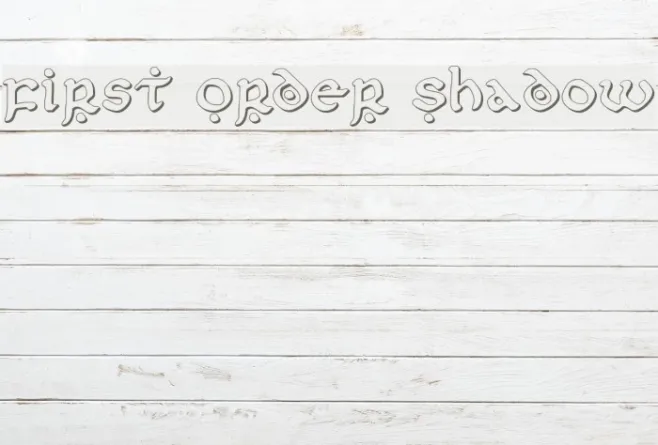 First Order Shadow